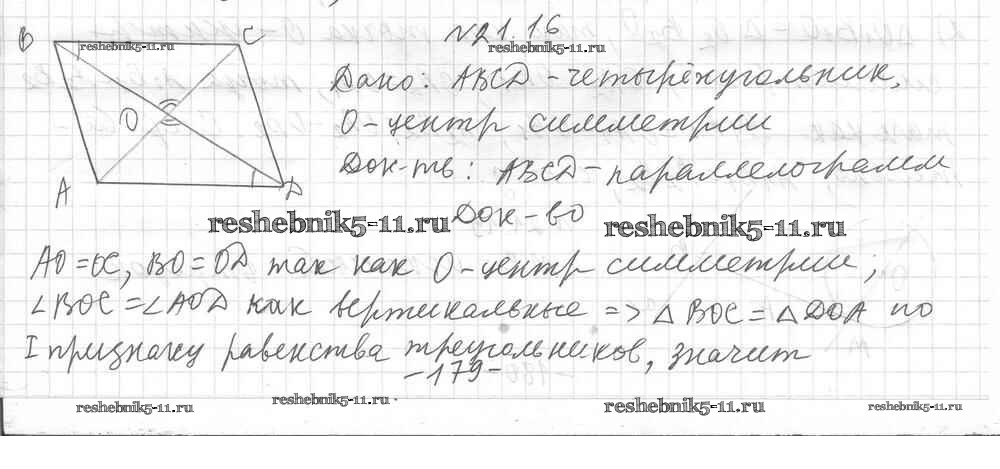 B
C
№21.16
reshebnik5-11.ru
reshebnik5-11.ru
reshebnik5-11.ru
Дано: ABCD – четырёхугольник,
O
O – центр симметрии
Док-ть: ABCD – параллелограмм
A
D
reshebnik5-11.ru
Док-во
reshebnik5-11.ru
AO = OC, BO = OD так как O – центр симметрии;
∠BOC = ∠AOD как вертикальные => △BOC = △DOA по
I признаку равенства треугольников, значит
–179–
reshebnik5-11.ru
reshebnik5-11.ru
reshebnik5-11.ru
reshebnik5-11.ru